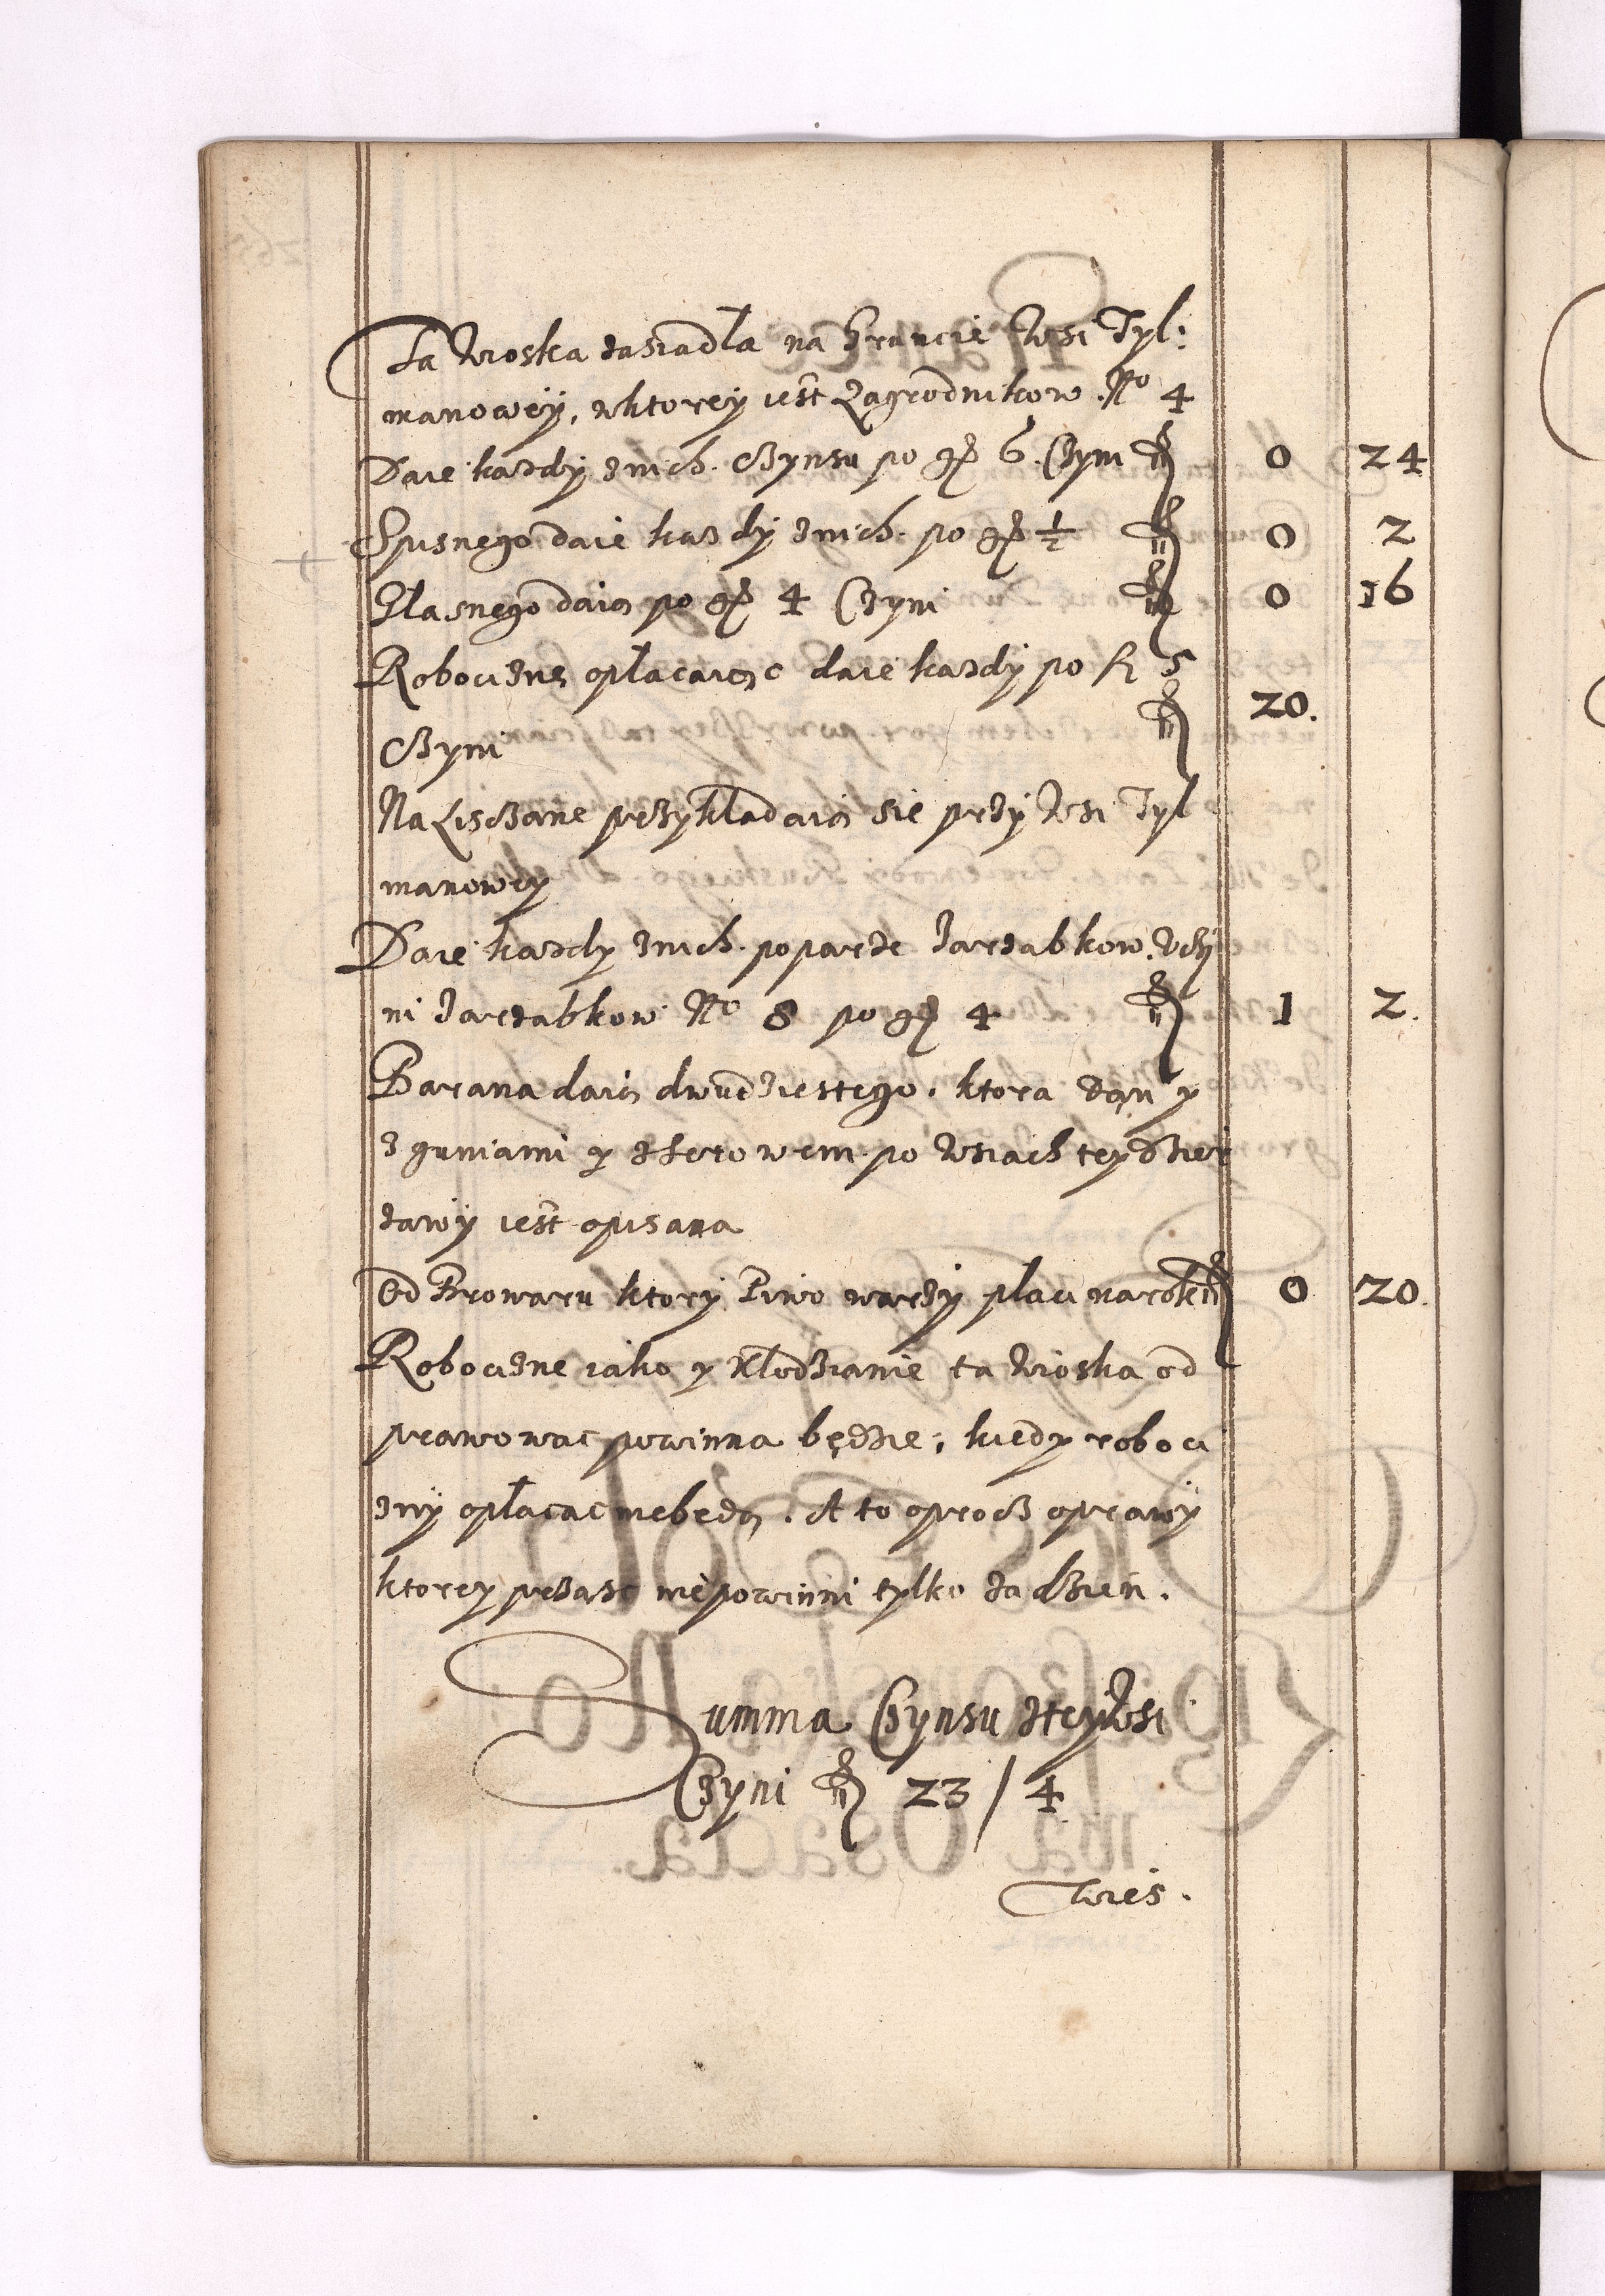 Ta Wioska zasiadła na Gruncie Wsi Tyl:
manowey, wktorey iest Zagrodnikow No 4
Daie kazdy znich. Czynsu po gr 6. Czyni fl 0 24
Spusnego daie kazdy znich. po gr ½ fl 0 2
Stasnego daią po gr 4 Czyni fl 0 16
Robociznę opłacaiąc daie kazdy po fl 5
Czyni fl 20.
Na Lisczane przykładaią sie przy Wsi Tyl
manowey
Daie kazdy znich. poparze Jarząbkow. Uczy
ni Jarząbkow No 8 po gr 4 fl 1 2.
Barana daią dwudziestego. ktora dan y
z guniami y zserowem. po Wsiach tey dzier
zawy iest opisana
Od Browaru ktory Piwo warzy płaci narok fl 0 20.
Robociznę iako y Kłodzianie ta Wioska od
prawowac powinna będzie, kiedy roboci
zny opłacac niebędą. A to oprocz oprawy
ktorey przasc niepowinni tylko za dzien.
Summa Czynsu zteyWsi
Czyni fl 23 / 4
Wies.